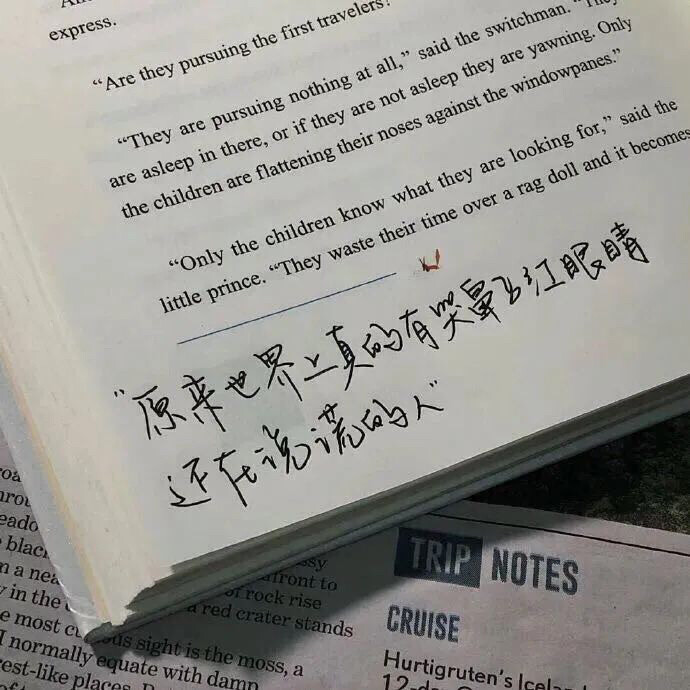 express.
"Are they pursuing the first travelers?"
"They are pursuing nothing at all," said the switchman. "They
are asleep in there, or if they are not asleep they are yawning. Only
the children are flattening their noses against the windowpanes."
"Only the children know what they are looking for," said the
little prince. "They waste their time over a rag doll and it becomes
"原来世界上真的有哭鼻子红眼睛
还在说谎的人"
TRIP NOTES
CRUISE
Hurtigruten's Icelan
12-da
front to
of rock rise
a red crater stands
sight is the moss, a
I normally equate with damp
est-like places.